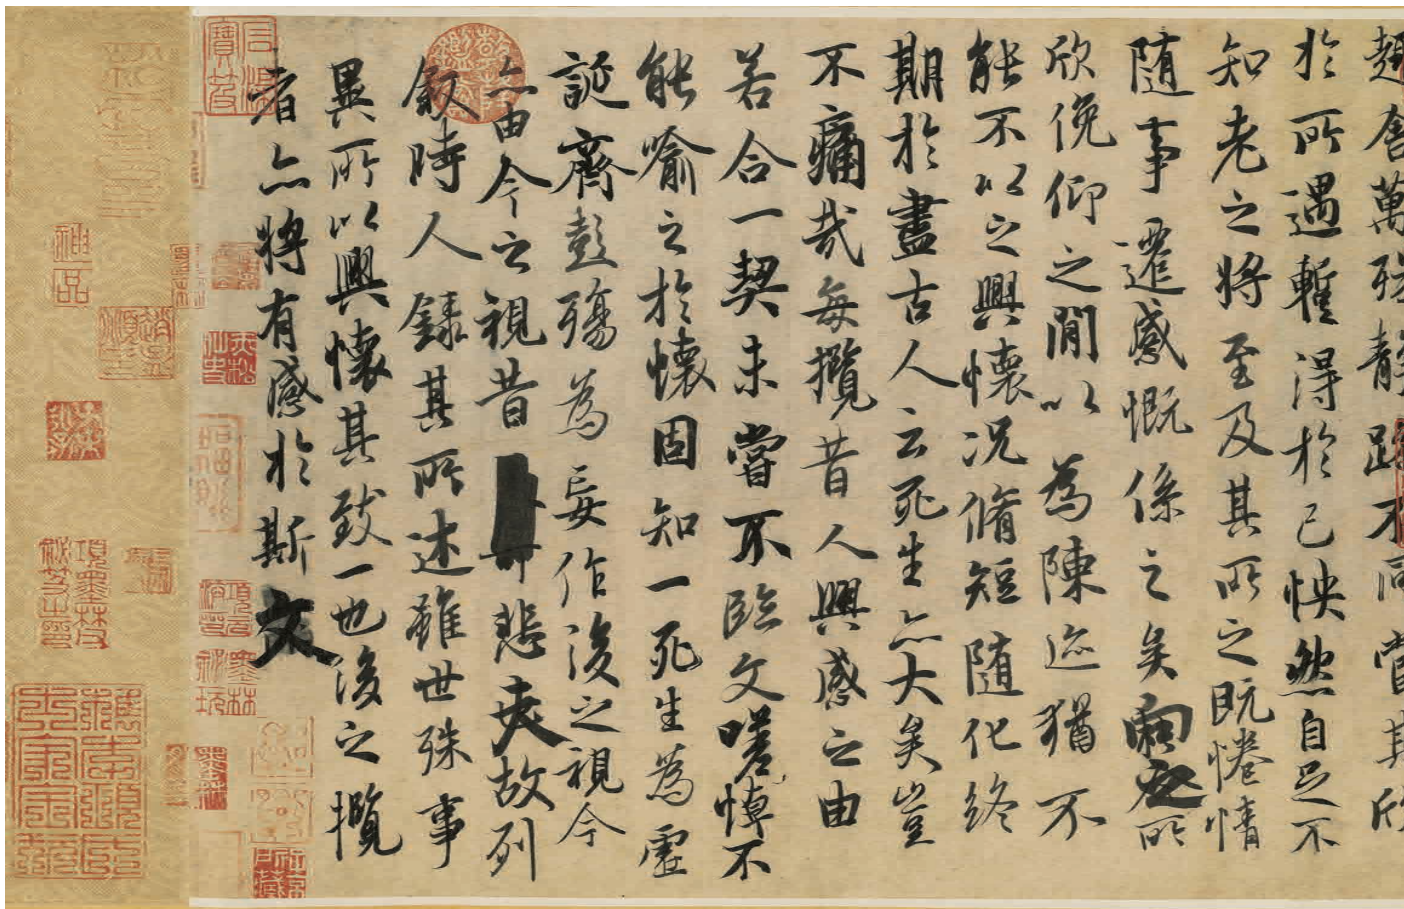 趣舍萬殊靜躁不同當其欣
於所遇蹔得於己怏然自足不
知老之將至及其所之既惓情
隨事遷感慨係之矣向之所
欣俛仰之閒以為陳迹猶不
能不以之興懷況脩短隨化終
期於盡古人云死生亦大矣豈
不痛哉每攬昔人興感之由
若合一契未嘗不臨文嗟悼不
能喻之於懷固知一死生為虛
誕齊彭殤為妄作後之視今
亦由今之視昔悲夫故列
敘時人錄其所述雖世殊事
異所以興懷其致一也後之攬
者亦將有感於斯文
神品
項墨林父祕笈之印